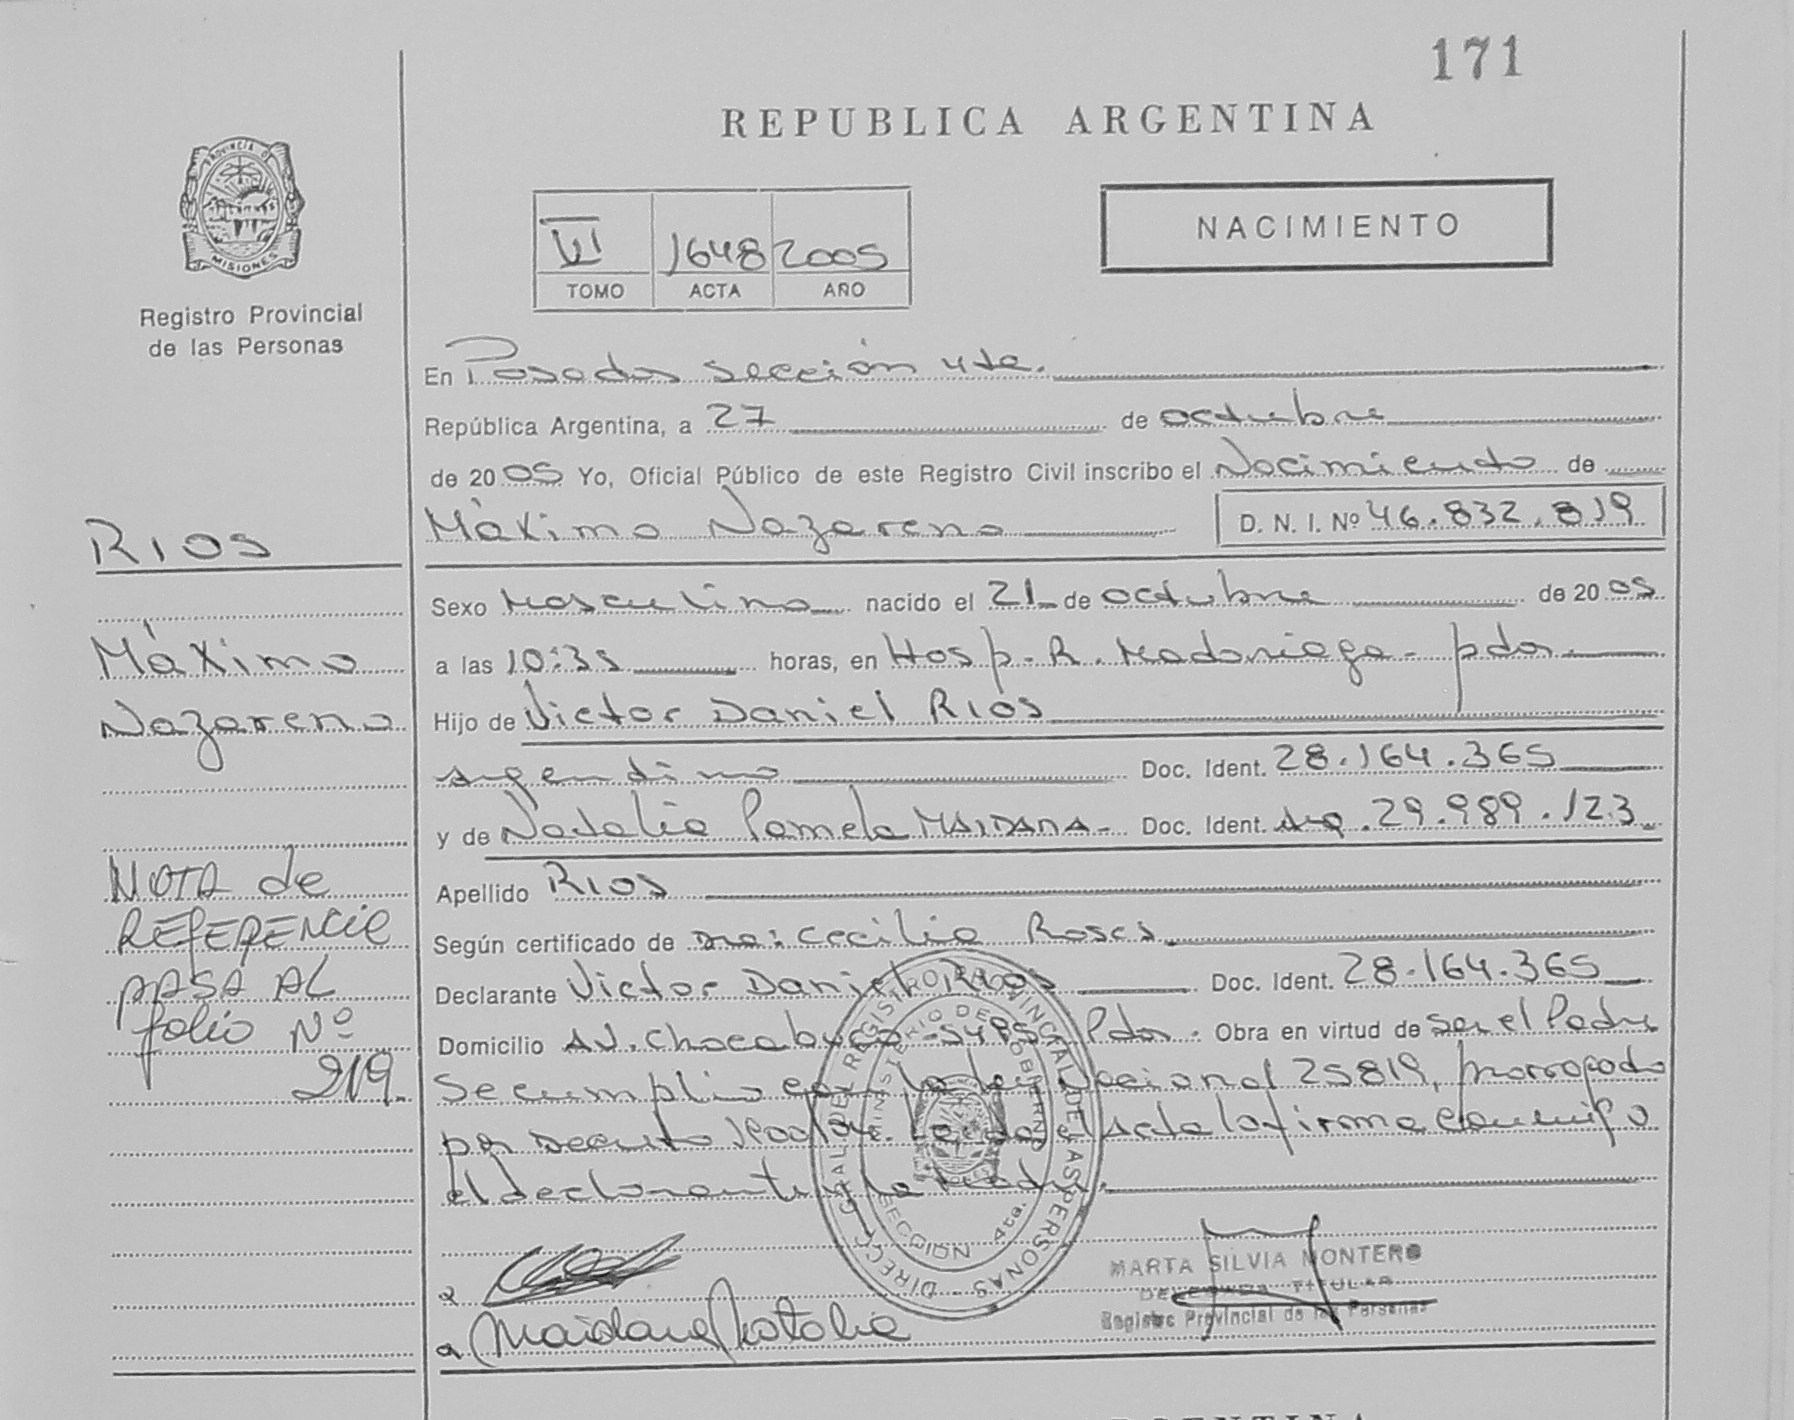 171
REPUBLICA ARGENTINA
PROVINCIA DE
MISIONES
Registro Provincial
de las Personas
NACIMIENTO
VI 1648 2005
TOMO ACTA AÑO
En Posadas sección 4ta.
República Argentina, a 27 de octubre
de 2005 Yo, Oficial Público de este Registro Civil inscribo el Nacimiento de
Máximo Nazareno D. N. I. Nº 46.832.819
RIOS
Máximo
Nazareno
Sexo Masculino nacido el 21 de octubre de 2005
a las 10:35 horas, en Hosp. R. Madariaga - pdas.
Hijo de Victor Daniel RIOS
argentino Doc. Ident. 28.164.365
y de Natalia Pamela MAIDANA - Doc. Ident. Arg. 29.989.123
Apellido RIOS
Según certificado de Dra: Cecilia Roses
Declarante Victor Daniel Rios Doc. Ident. 28.164.365
Domicilio AV. Chacabuco - 5485 Pdas. Obra en virtud de ser el Padre
Se cumplio con la ley Nacional 25819, prorrogado
por Decreto 1900/04. Leida el Acta la firma conmigo
el declarante y la Madre.
NOTA de
REFERENCIA
PASA AL
folio Nº
219.
DIRECC. GRAL DEL REGISTRO PROVINCIAL DE LAS PERSONAS
MINISTERIO DE GOBIERNO
SECCION 4ta.
MARTA SILVIA MONTERO
DELEGADA TITULAR
Registro Provincial de las Personas
a
a Maidana Natalia
ARGENTINA